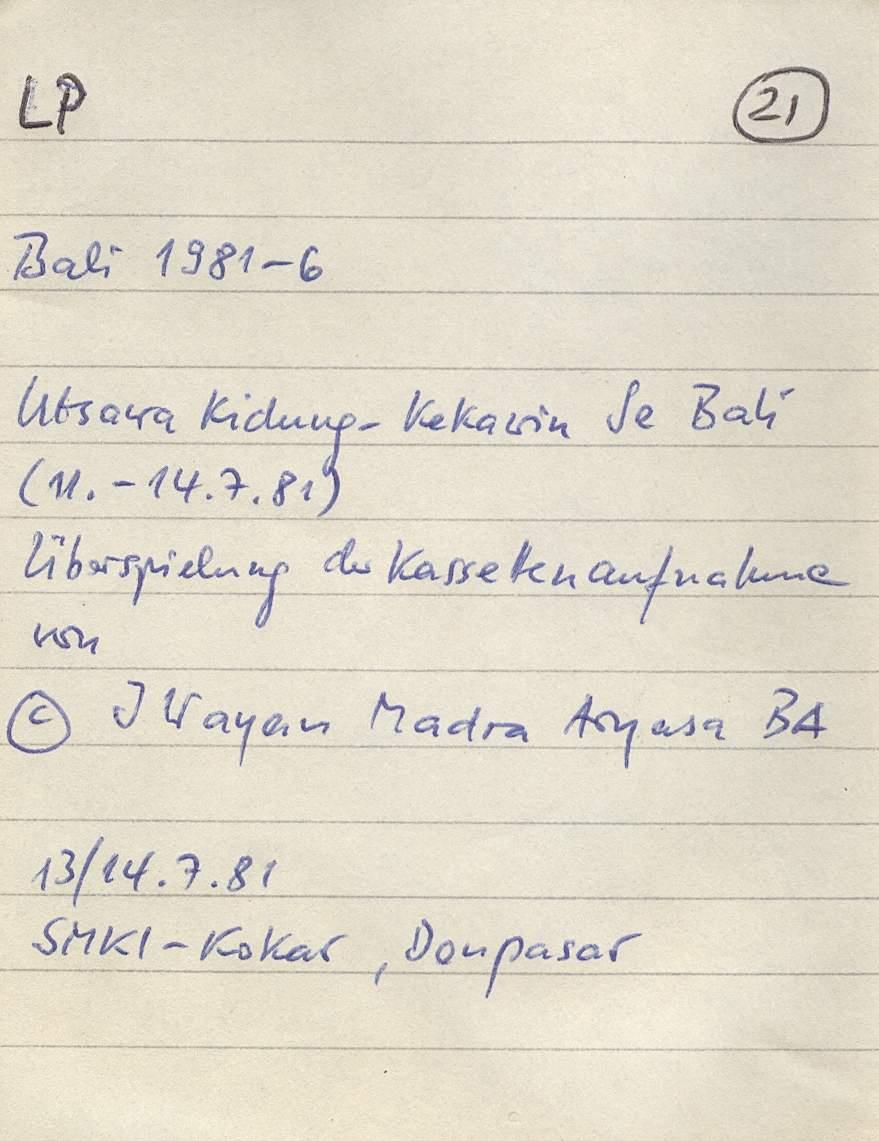 LP
21
Bali 1981-6
Utsawa Kidung-Kekawin Se Bali
(11.-14.7.81)
Überspielung der Kassettenaufnahme
von
© I Wayan Madra Aryasa BA
13/14.7.81
SMKI-Kokar, Denpasar